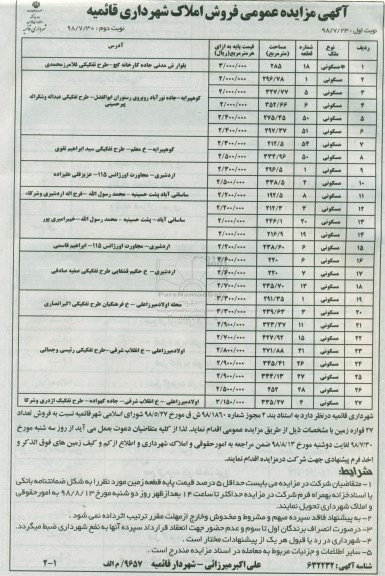 آگهی مزایده عمومی فروش املاک شهرداری قائمیه
نوبت اول: ۹۸/۷/۲۳ نوبت دوم: ۹۸/۷/۳۰
ردیف نوع ملک شماره قطعه مساحت (مترمربع) قیمت پایه به ازای هر مترمربع (ریال) آدرس
۱ مسکونی ۱۸ ۲۸۵ ۳/۰۰۰/۰۰۰ بلوار ش مدنی جاده کارخانه گچ - طرح تفکیکی فلامرزمحمدی
۲ مسکونی ۱ ۲۹۶/۷۸ ۲/۰۰۰/۰۰۰
۳ مسکونی ۵ ۳۲۷/۷۷ ۲/۰۰۰/۰۰۰ کوهپرایه - جاده نورآباد روبروی رستوران ابوالفضل - طرح تفکیکی عبداله وشکراله پیرحسینی
۴ مسکونی ۶ ۳۵۲/۶۶
۵ مسکونی ۵۰ ۲۷۵/۴۵
۶ مسکونی ۵۱ ۲۹۷/۳۷
۷ مسکونی ۵۴ ۲۱۲/۵ کوهپرایه - خ معلم - طرح تفکیکی سید ابراهیم تقوی
۸ مسکونی ۵۰ ۳۳۴/۹۶
۹ مسکونی ۱ ۲۹۶/۵ اردشیری - مجاورت اورژانس ۱۱۵ - عزیزقلی علیزاده
۱۰ مسکونی ۲ ۳۳۸/۵
۱۱ مسکونی ۸ ۱۹۲/۵ ساسانی آباد پشت حسینیه - محمد رسول الله - فرج اله اردشیری وشرکاء
۱۲ مسکونی ۴ ۲۱۲/۳
۱۳ مسکونی ۲۰ ۲۴۶/۱ ساسانی آباد - پشت حسینیه - محمد رسول الله - خیبرامیری پور
۱۴ مسکونی ۱۹ ۲۱۶/۹
۱۵ مسکونی ۶ ۲۳۸/۶۰ اردشیری - مجاورت اورژانس ۱۱۵ - ابراهیم قاسمی
۱۶ مسکونی ۶ ۲۲۰ اردشیری - خ حکیم قشقایی طرح تفکیکی صفیه صادقی
۱۷ مسکونی ۷ ۲۲۰
۱۸ مسکونی ۱۳ ۲۳۵/۷۰
۱۹ مسکونی ۱ ۲۹۱/۳۵ محله اولادمیرزاعلی - خ فرهنگیان طرح تفکیکی اکبرانصاری
۲۰ مسکونی ۳ ۲۳۹/۶۳
۲۱ مسکونی ۱۱ ۳۲۳/۳۷ اولادمیرزاعلی - خ انقلاب شرقی - طرح تفکیکی رئیسی وجمالی
۲۲ مسکونی ۱۵ ۴۲۷/۹۲
۲۳ مسکونی ۲۱ ۲۷۱/۸۸
۲۴ مسکونی ۲۶ ۳۴۵/۴۱
۲۵ مسکونی ۲۷ ۳۴۴/۱۳
۲۶ مسکونی ۲۸ ۲۵۲
۲۷ مسکونی ۴ ۳۳۵/۲۷ ۳/۱۵۰/۰۰۰ اولادمیرزاعلی - خ انقلاب شرقی - جاده کهواده - طرح تفکیک اژدری وشرکا
شهرداری قائمیه درنظر دارد به استناد بند ۲ مجوز شماره ۹۸/۱۸۶۰ ش ق مورخ ۹۸/۵/۲۷ شورای اسلامی شهرقائمیه نسبت به فروش تعداد
۲۷ قواره زمین با مشخصات ذیل از طریق مزایده عمومی اقدام نماید. لذا از کلیه متقاضیان دعوت بعمل می آید از روز سه شنبه مورخ
۹۸/۷/۳۰ لغایت دوشنبه مورخ ۹۸/۸/۱۳ ضمن مراجعه به امورحقوقی و املاک شهرداری و اطلاع از کم و کیف زمین های فوق الذکر و
اخذ فرم پیشنهادی جهت شرکت درمزایده اقدام نمایند.
شرایط:
۱ - متقاضیان شرکت در مزایده می بایست حداقل ۵ درصد قیمت پایه قطعه زمین مورد نظر را به شکل ضمانتنامه بانکی
یا اسنادخزانه بهمراه فرم شرکت در مزایده حداکثر تا ساعت ۱۴ بعدازظهر روز دو شنبه مورخ ۹۸/۸/۱۳ به امورحقوقی
و املاک شهرداری تحویل نمایند.
۲ - به پیشنهاد فاقد سپرده مبهم و مشروط و مخدوش وخارج ازمهلت مقرر ترتیب اثرداده نمی شود.
۳ - درصورت انصراف برندگان اول تا سوم و عدم حضور جهت انعقاد قرارداد سپرده آنها به نفع شهرداری ضبط میگردد.
۴ - شهرداری در رد یا قبول هر یک از پیشنهادات مختار است.
۵ - سایر اطلاعات و جزئیات مربوط به معامله در اسناد مزایده مندرج است.
شناسه آگهی: ۶۳۲۲۳۲ علی اکبر میرزائی - شهردار قائمیه ۹۶۵۷/م الف ۲-۱